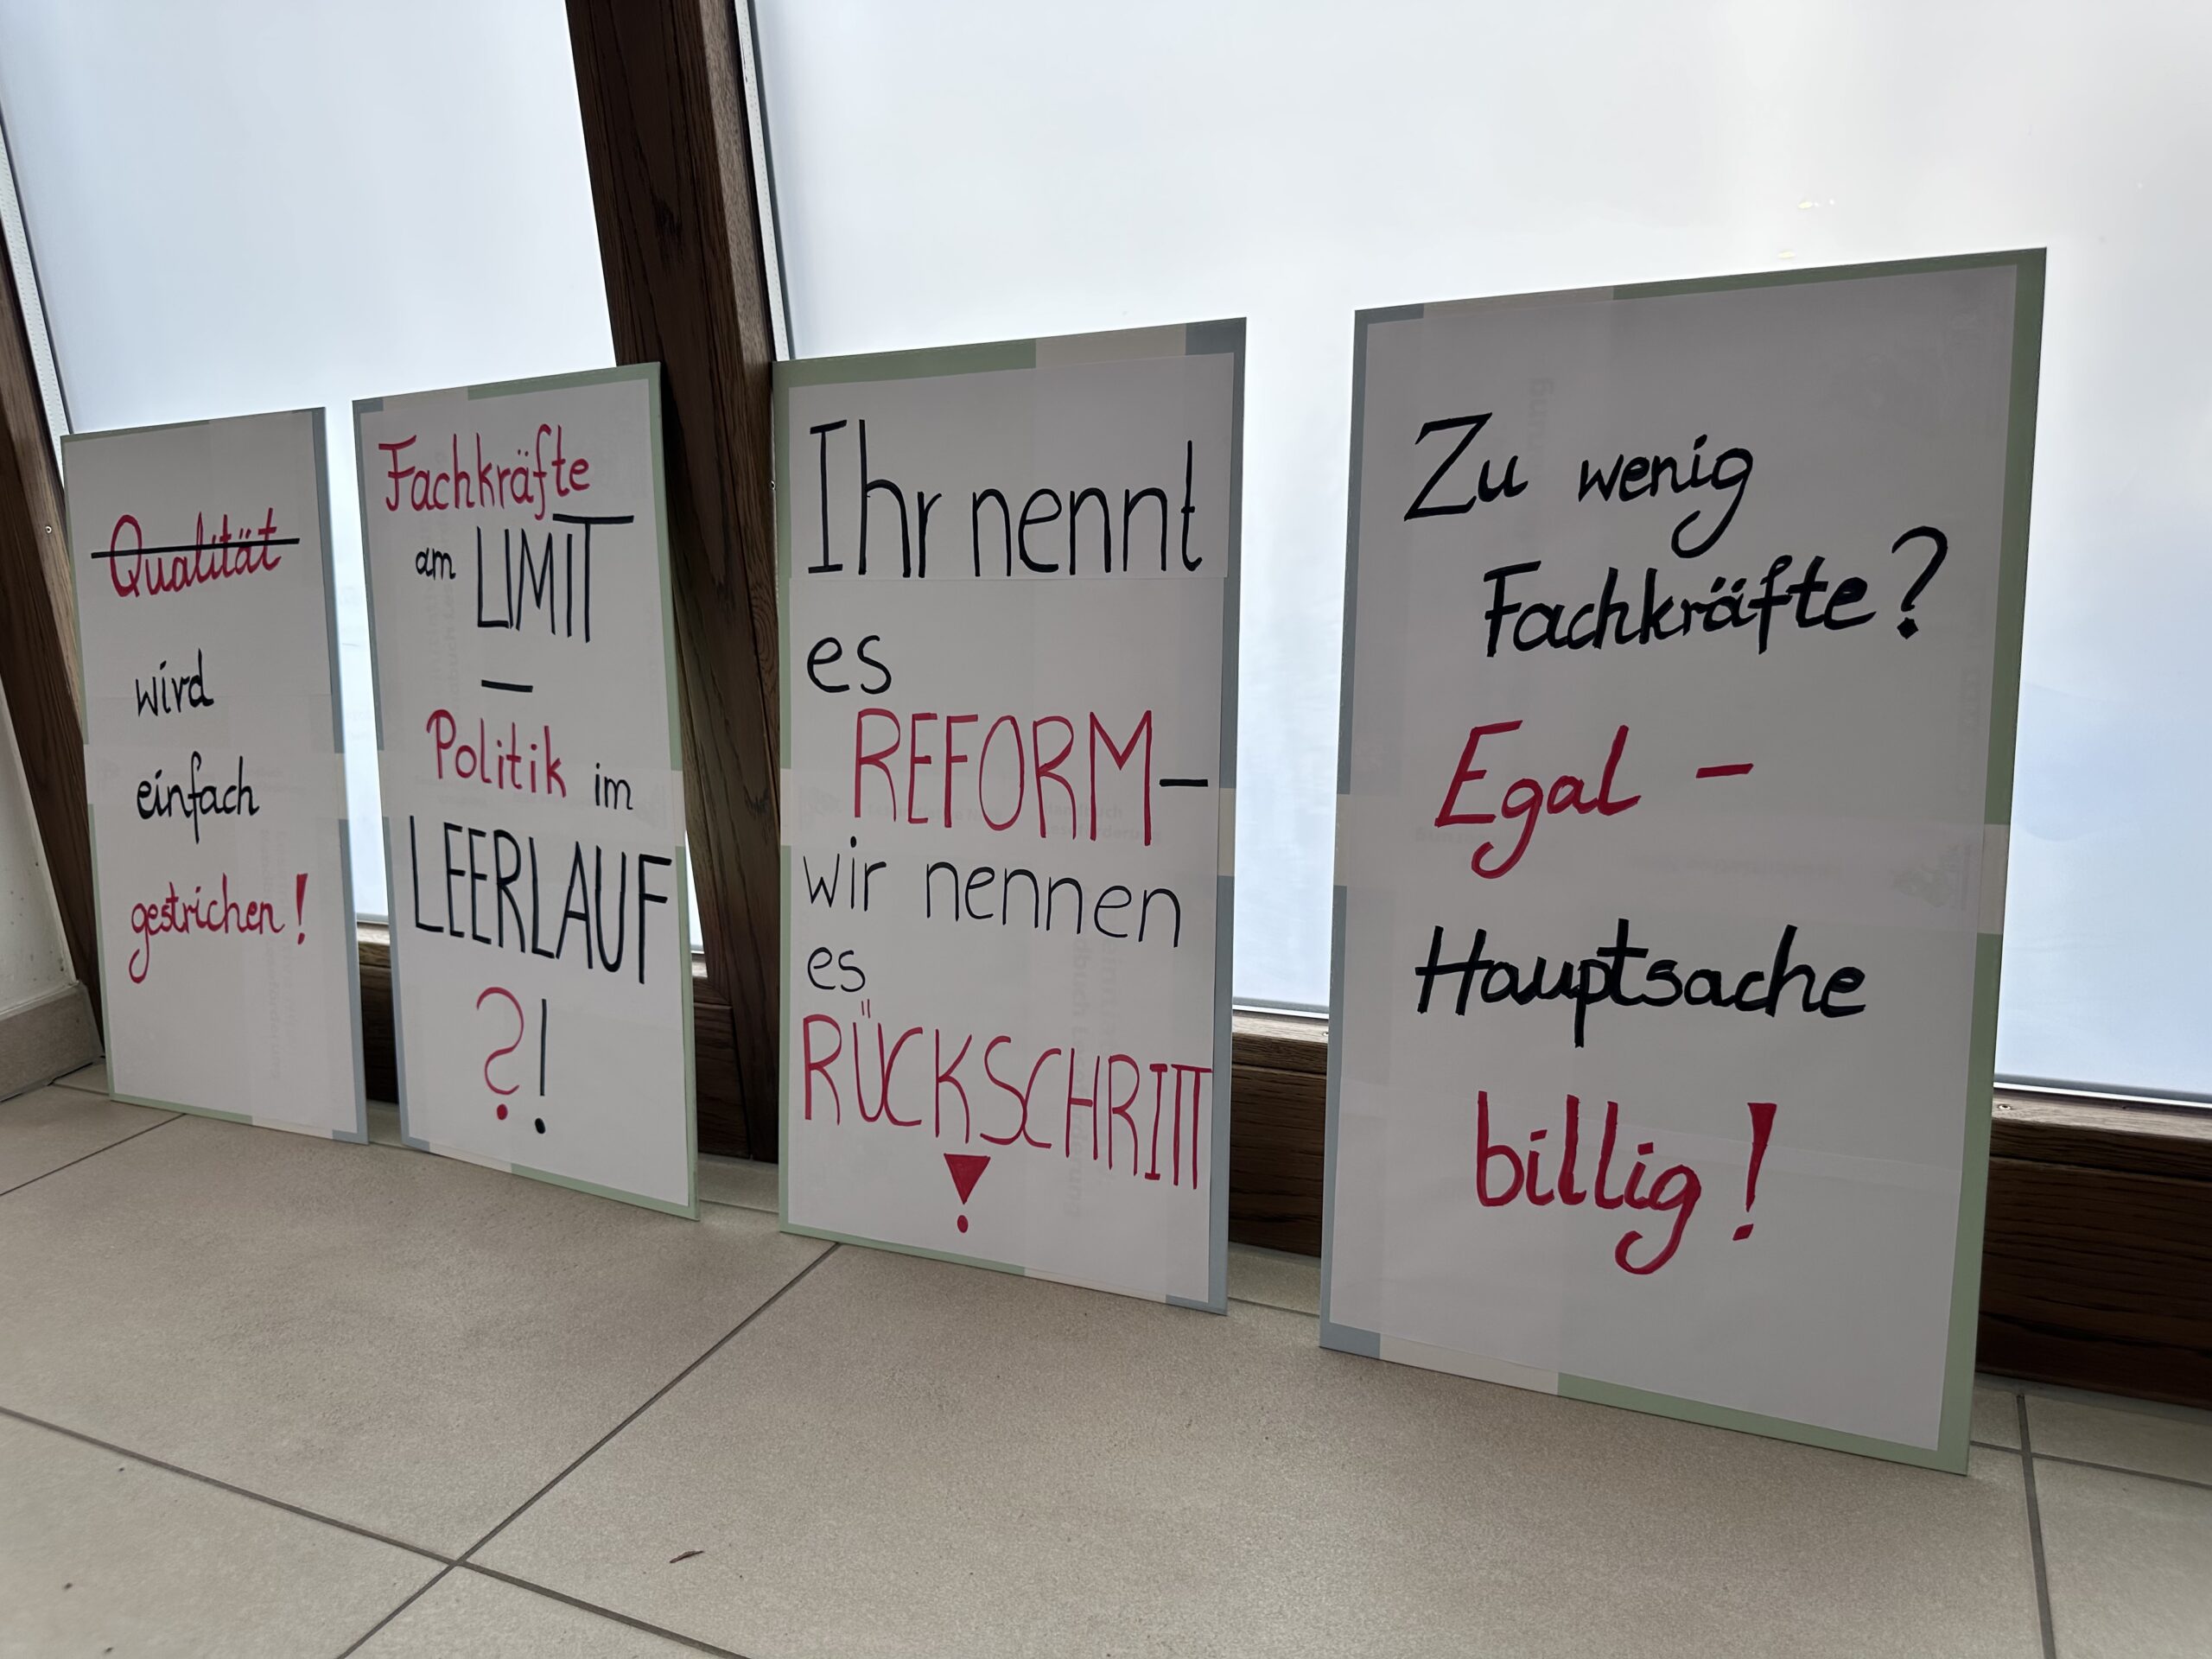 Qualität
wird
einfach
gestrichen!
Fachkräfte
am LIMIT
–
Politik im
LEERLAUF
?!
Ihr nennt
es
REFORM–
wir nennen
es
RÜCKSCHRITT
!
Zu wenig
Fachkräfte?
Egal –
Hauptsache
billig!